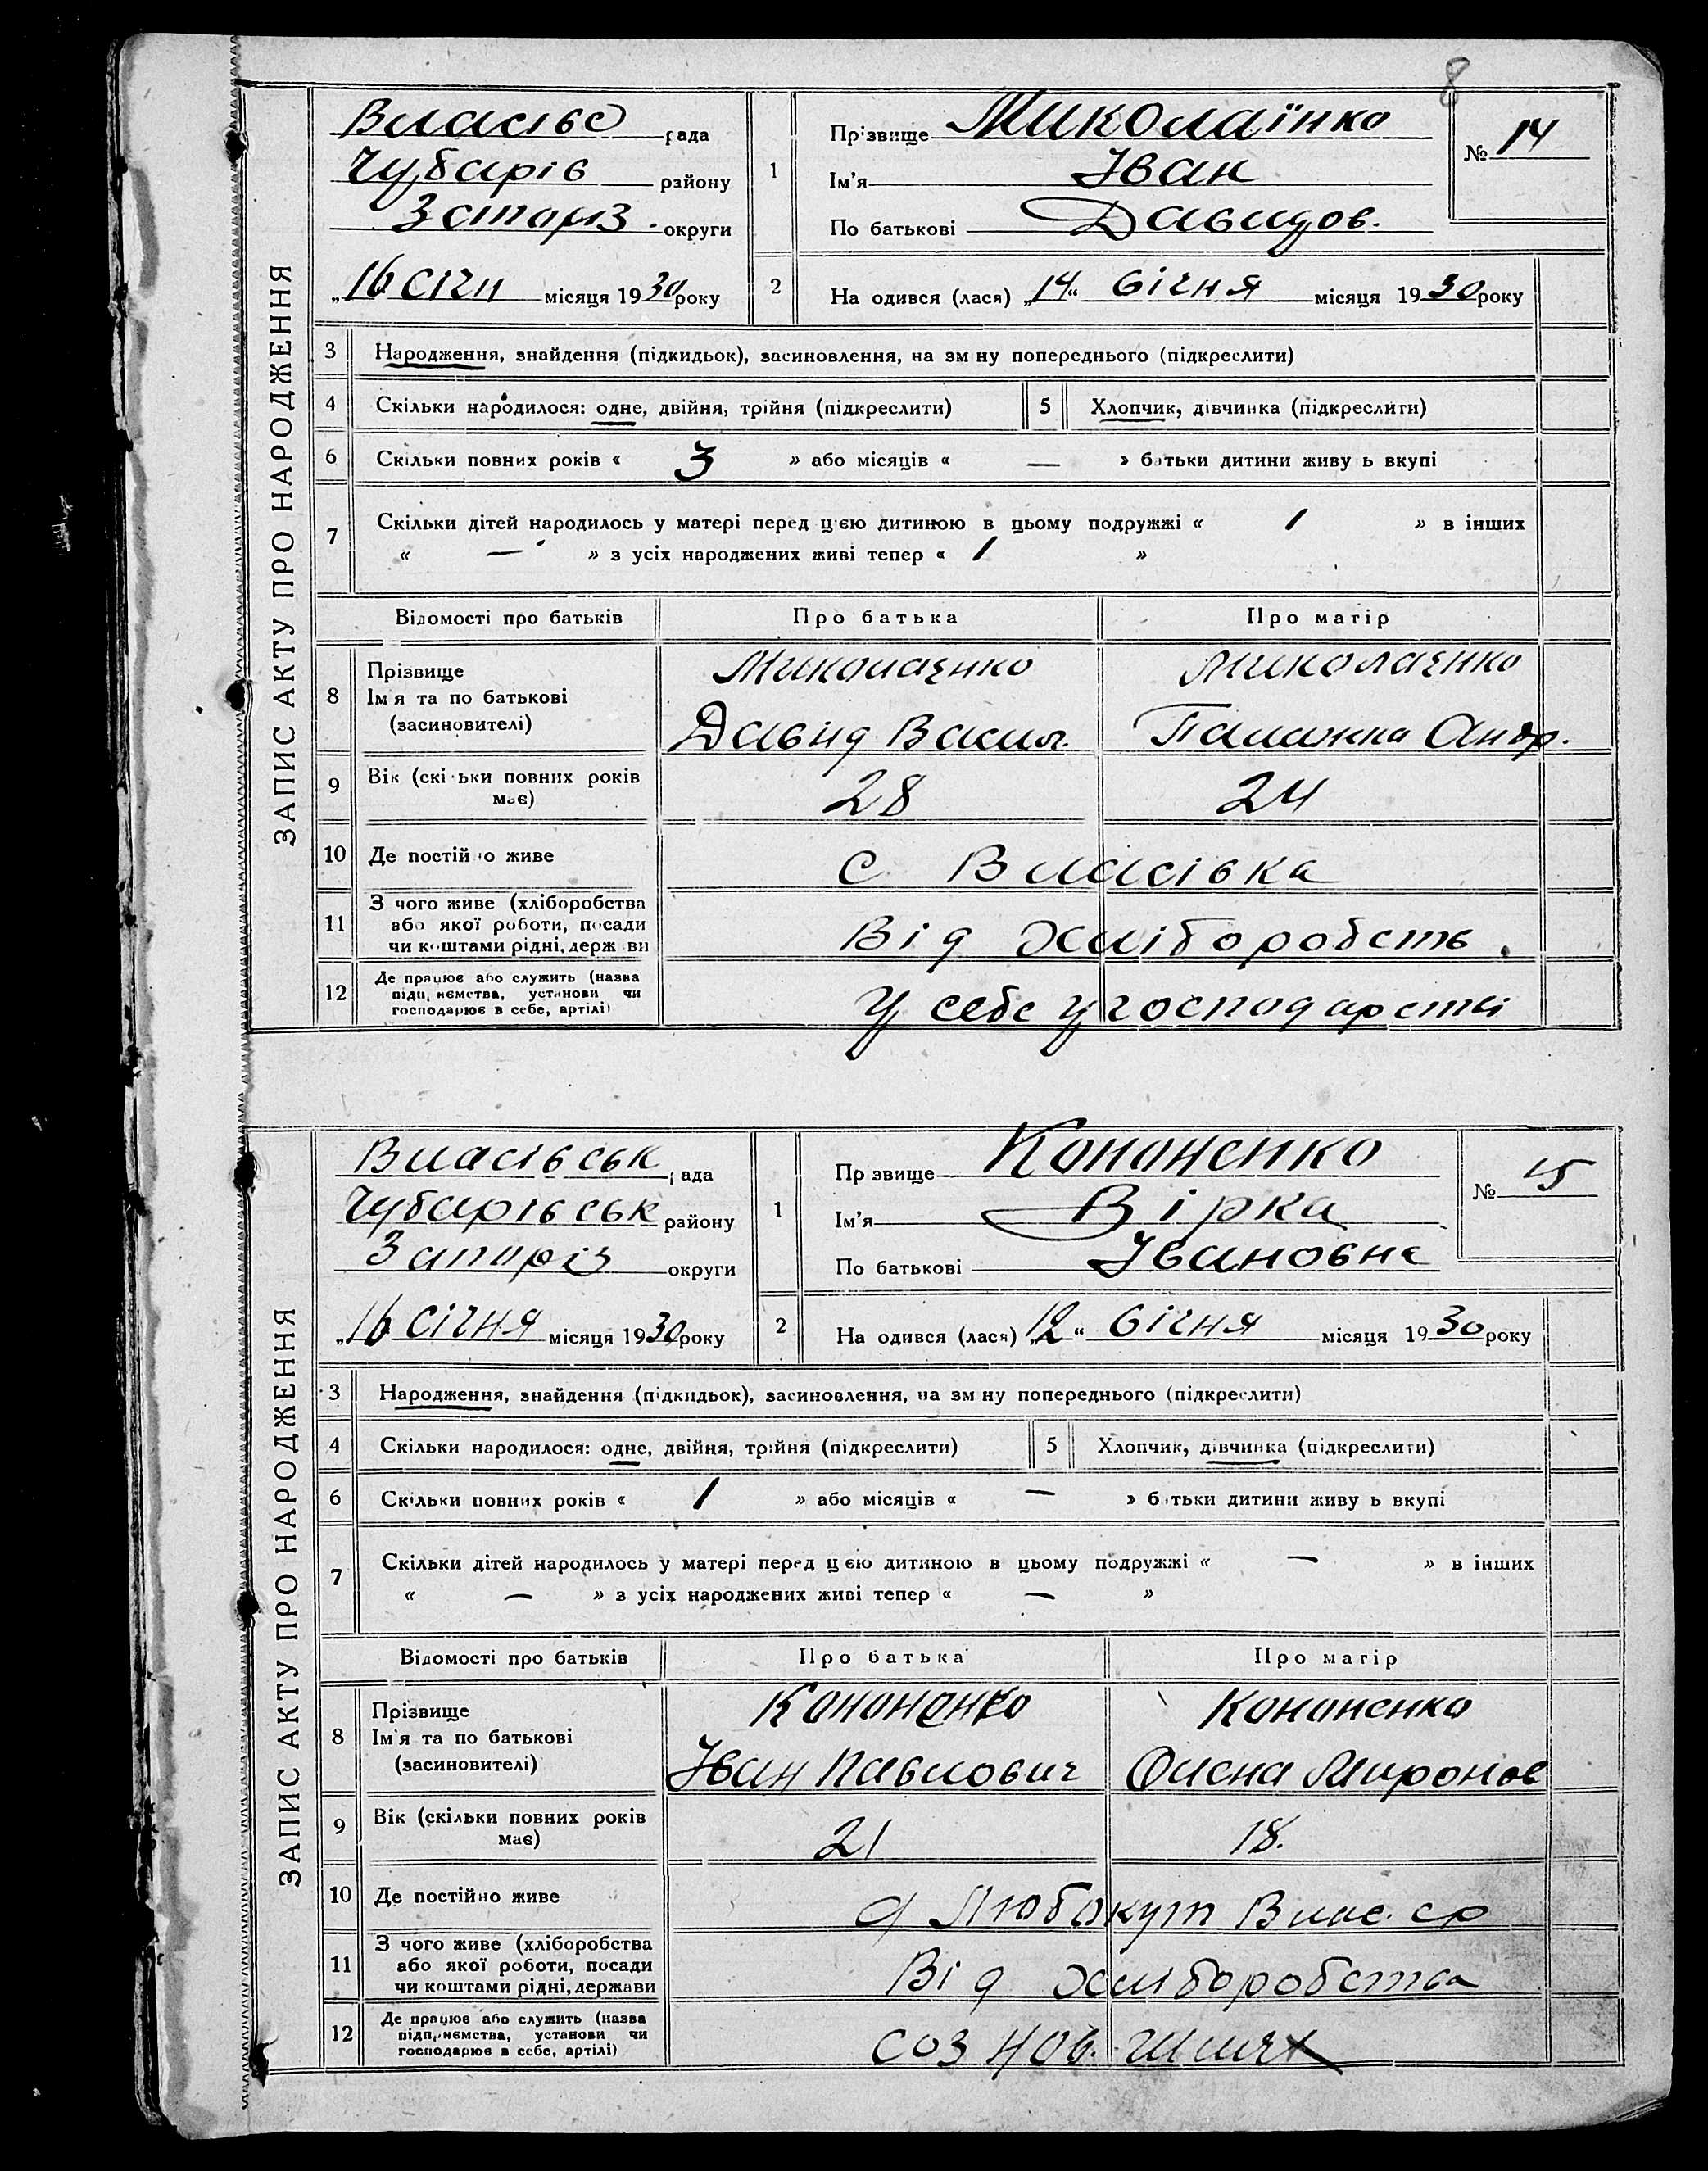 8
ЗАПИС АКТУ ПРО НАРОДЖЕННЯ
Власівс рада
Чубарів району
Запоріз. округи
„16 січн місяця 1930 року
1
Прізвище Миколаїнко
Ім'я Іван
По батькові Давидов.
№ 14
2
На одився (лася) „14“ Січня місяця 1930 року
3 Народження, знайдення (підкидьок), засиновлення, на зм ну попереднього (підкреслити)
4 Скільки народилося: одне, двійня, трійня (підкреслити) 5 Хлопчик, дівчинка (підкреслити)
6 Скільки повних років « 3 » або місяців « — » батьки дитини живу ь вкупі
7 Скільки дітей народилось у матері перед цією дитиною в цьому подружжі « 1 » в інших
« — » з усіх народжених живі тепер « 1 »
Відомості про батьків Про батька Про матір
8 Прізвище Миколаєнко Миколаєнко
Ім'я та по батькові
(засиновителі) Давид Васил. Палажка Андр.
9 Вік (скільки повних років має) 28 24
10 Де постійно живе с Власівка
11 З чого живе (хліборобства
або якої роботи, посади
чи коштами рідні, держави Від хліборобств.
12 Де працює або служить (назва
підприємства, установи чи
господарює в себе, артілі) У себе у господарстві
ЗАПИС АКТУ ПРО НАРОДЖЕННЯ
Власівськ рада
Чубарівськ району
Запоріз округи
„16 січня місяця 1930 року
1
Пр звище Кононенко
Ім'я Вірка
По батькові Івановна
№ 15
2
На одився (лася) „12“ Січня місяця 1930 року
3 Народження, знайдення (підкидьок), засиновлення, на зм ну попереднього (підкреслити)
4 Скільки народилося: одне, двійня, трійня (підкреслити) 5 Хлопчик, дівчинка (підкреслити)
6 Скільки повних років « 1 » або місяців « — » батьки дитини живу ь вкупі
7 Скільки дітей народилось у матері перед цією дитиною в цьому подружжі « — » в інших
« — » з усіх народжених живі тепер « — »
Відомості про батьків Про батька Про матір
8 Прізвище Кононенко Кононенко
Ім'я та по батькові
(засиновителі) Іван Павлович Олена Миронов
9 Вік (скільки повних років має) 21 18.
10 Де постійно живе Любокут Влас. ср
11 З чого живе (хліборобства
або якої роботи, посади
чи коштами рідні, держави Від хліборобства
12 Де працює або служить (назва
підприємства, установи чи
господарює в себе, артілі) Соз Нов. Шлях